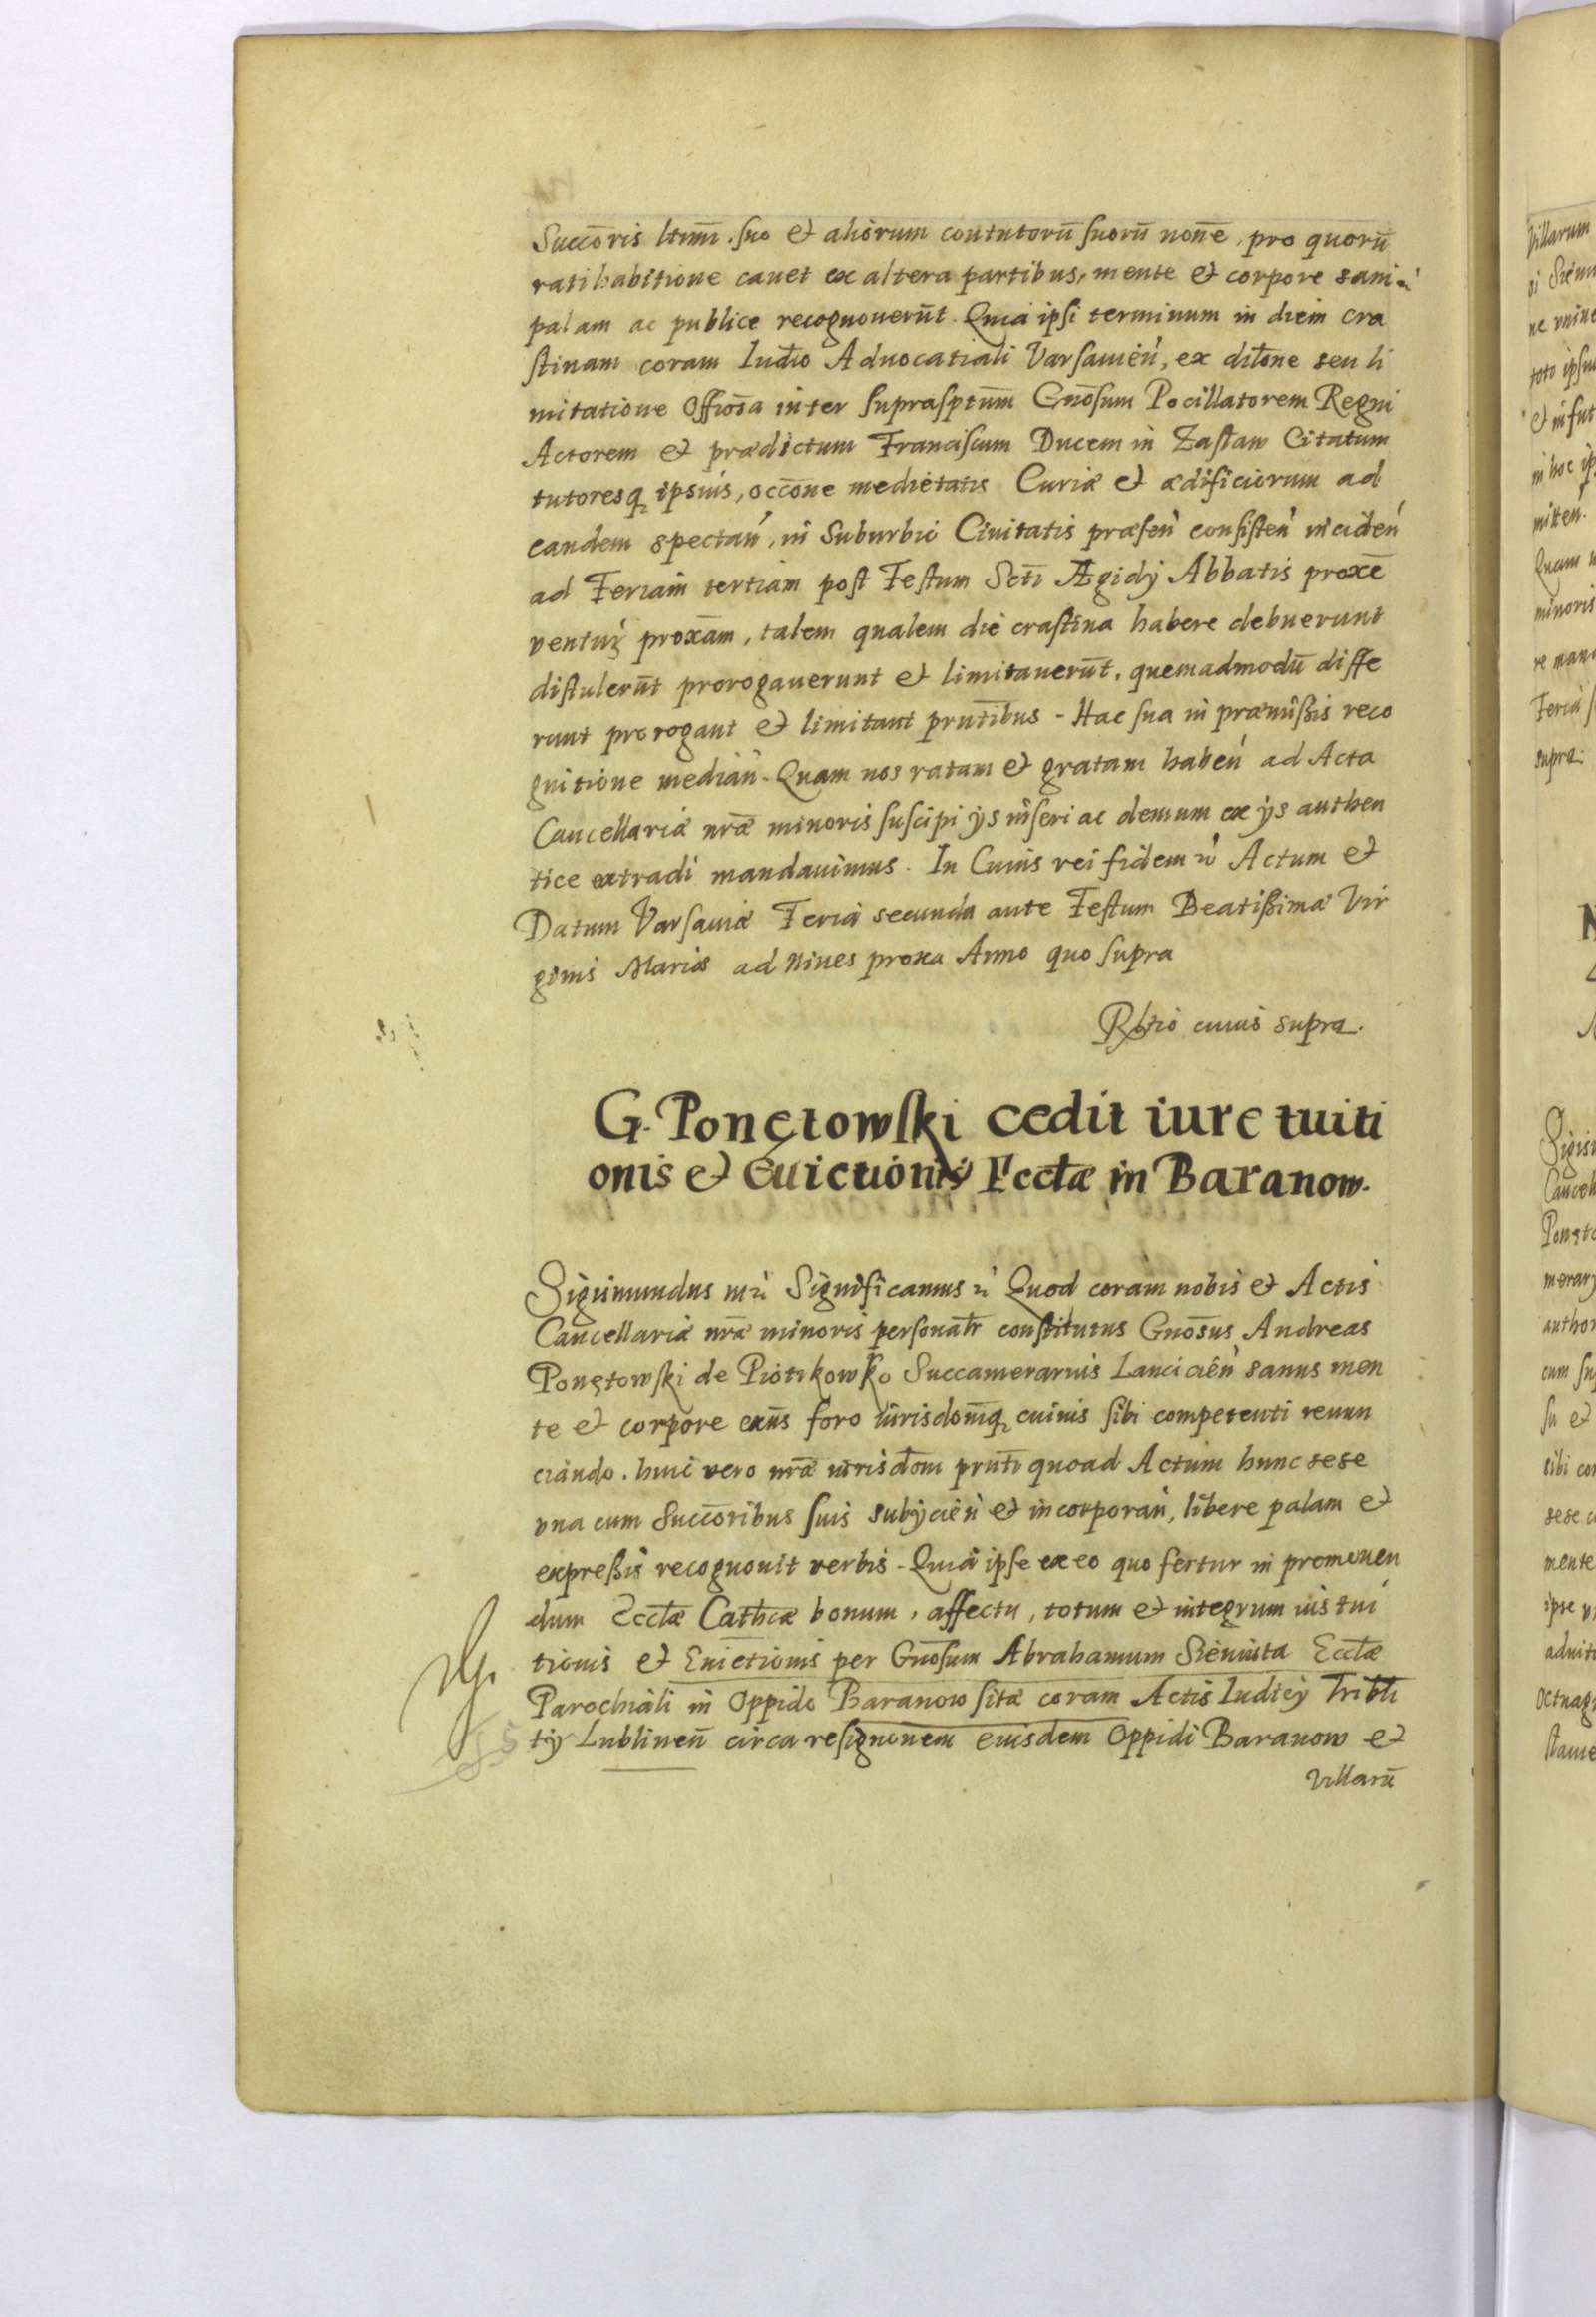 Succōris ltīmi, suo et aliorum contutorū suorū noīe, pro quorū
ratihabitione cauet ex altera partibus, mente et corpore sani
palam ac publice recognouerūt. Quia ipsi terminum in diem cra
stinam coram Iudīo Aduocatiali Varsauień, ex dilōne seu li
mitatione Offiosa inter suprasptūm Gnōsum Pocillatorem Regni
Actorem et prædictum Franciscum Ducem in Zasław Citatum
tutoresq ipsius, occōne medietatis Curiæ et ædificiorum ad
eandem spectań, in Suburbio Ciuitatis præseń consisteń incideń
ad Feriam tertiam post Festum Scti Ægidij Abbatis proxē
ventuꝝ proxām, talem qualem die crastina habere debuerunt
distulerūt prorogauerunt et limitauerūt, quemadmodū diffe
runt prorogant et limitant prntībus - Hac sua in præmissis reco
gnitione mediań. Quam nos ratam et gratam habeń ad Acta
Cancellariæ nræ minoris suscipi ijs inseri ac demum ex ijs authen
tice extradi mandauimus. In Cuius rei fidem etc Actum et
Datum Varsauiæ Feria secunda ante Festum Beatissimæ Vir
ginis Mariæ ad Niues proxa Anno quo supra
Rltio cuius supra.
G. Ponętowski cedit iure tuiti
onis et Euictionis Ecctæ in Baranow.
Sigismundus etc Significamus etc Quod coram nobis et Actis
Cancellariæ nræ minoris personatr constitutus Gnōsus Andreas
Ponętowski de Piotrkowko Succamerarius Lancicień sanus men
te et corpore exūs foro iurisdoniq cuiuis sibi competenti renun
ciando. huic vero nræ iurisdoni prnti quoad Actum hunc sese
vna cum Succōribus suis subijcień et incorporań, libere palam et
expressis recognouit verbis - Quia ipse ex eo quo fertur in promouen
dum Ecctæ Cathcæ bonum, affectu, totum et integrum ius tui
tionis et Euictionis per Gnōsum Abrahamum Sieniuta Ecctæ
Parochiali in Oppido Baranow sitæ coram Actis Iudicij Tribli
tij Lublineń circa resignonem eiusdem Oppidi Baranow et
Villarū